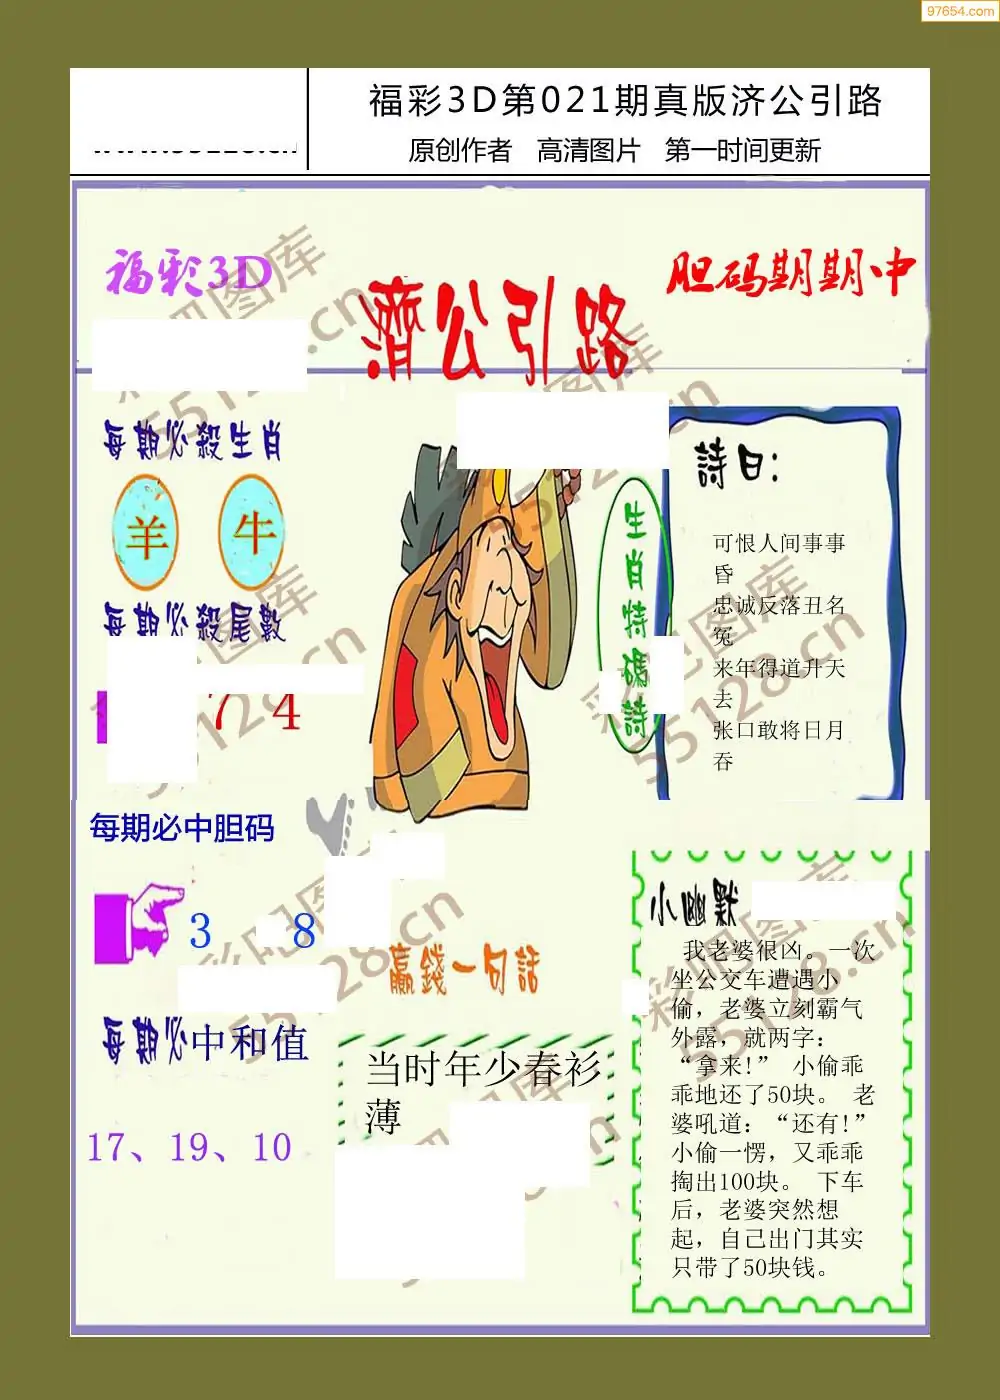 97654.com
福彩3D第021期真版济公引路
原创作者 高清图片 第一时间更新
福彩3D
胆码期期中
濟公引路
每期必殺生肖
羊 牛
每期必殺尾數
7 4
生肖特碼詩
詩曰：
可恨人间事事
昏
忠诚反落丑名
冤
来年得道升天
去
张口敢将日月
吞
每期必中胆码
3 8
每期必中和值
17、19、10
贏錢一句話
当时年少春衫
薄
小幽默
我老婆很凶。一次
坐公交车遭遇小
偷，老婆立刻霸气
外露，就两字：
“拿来!” 小偷乖
乖地还了50块。 老
婆吼道：“还有!”
小偷一愣，又乖乖
掏出100块。 下车
后，老婆突然想
起，自己出门其实
只带了50块钱。
彩吧图库
55128.cn